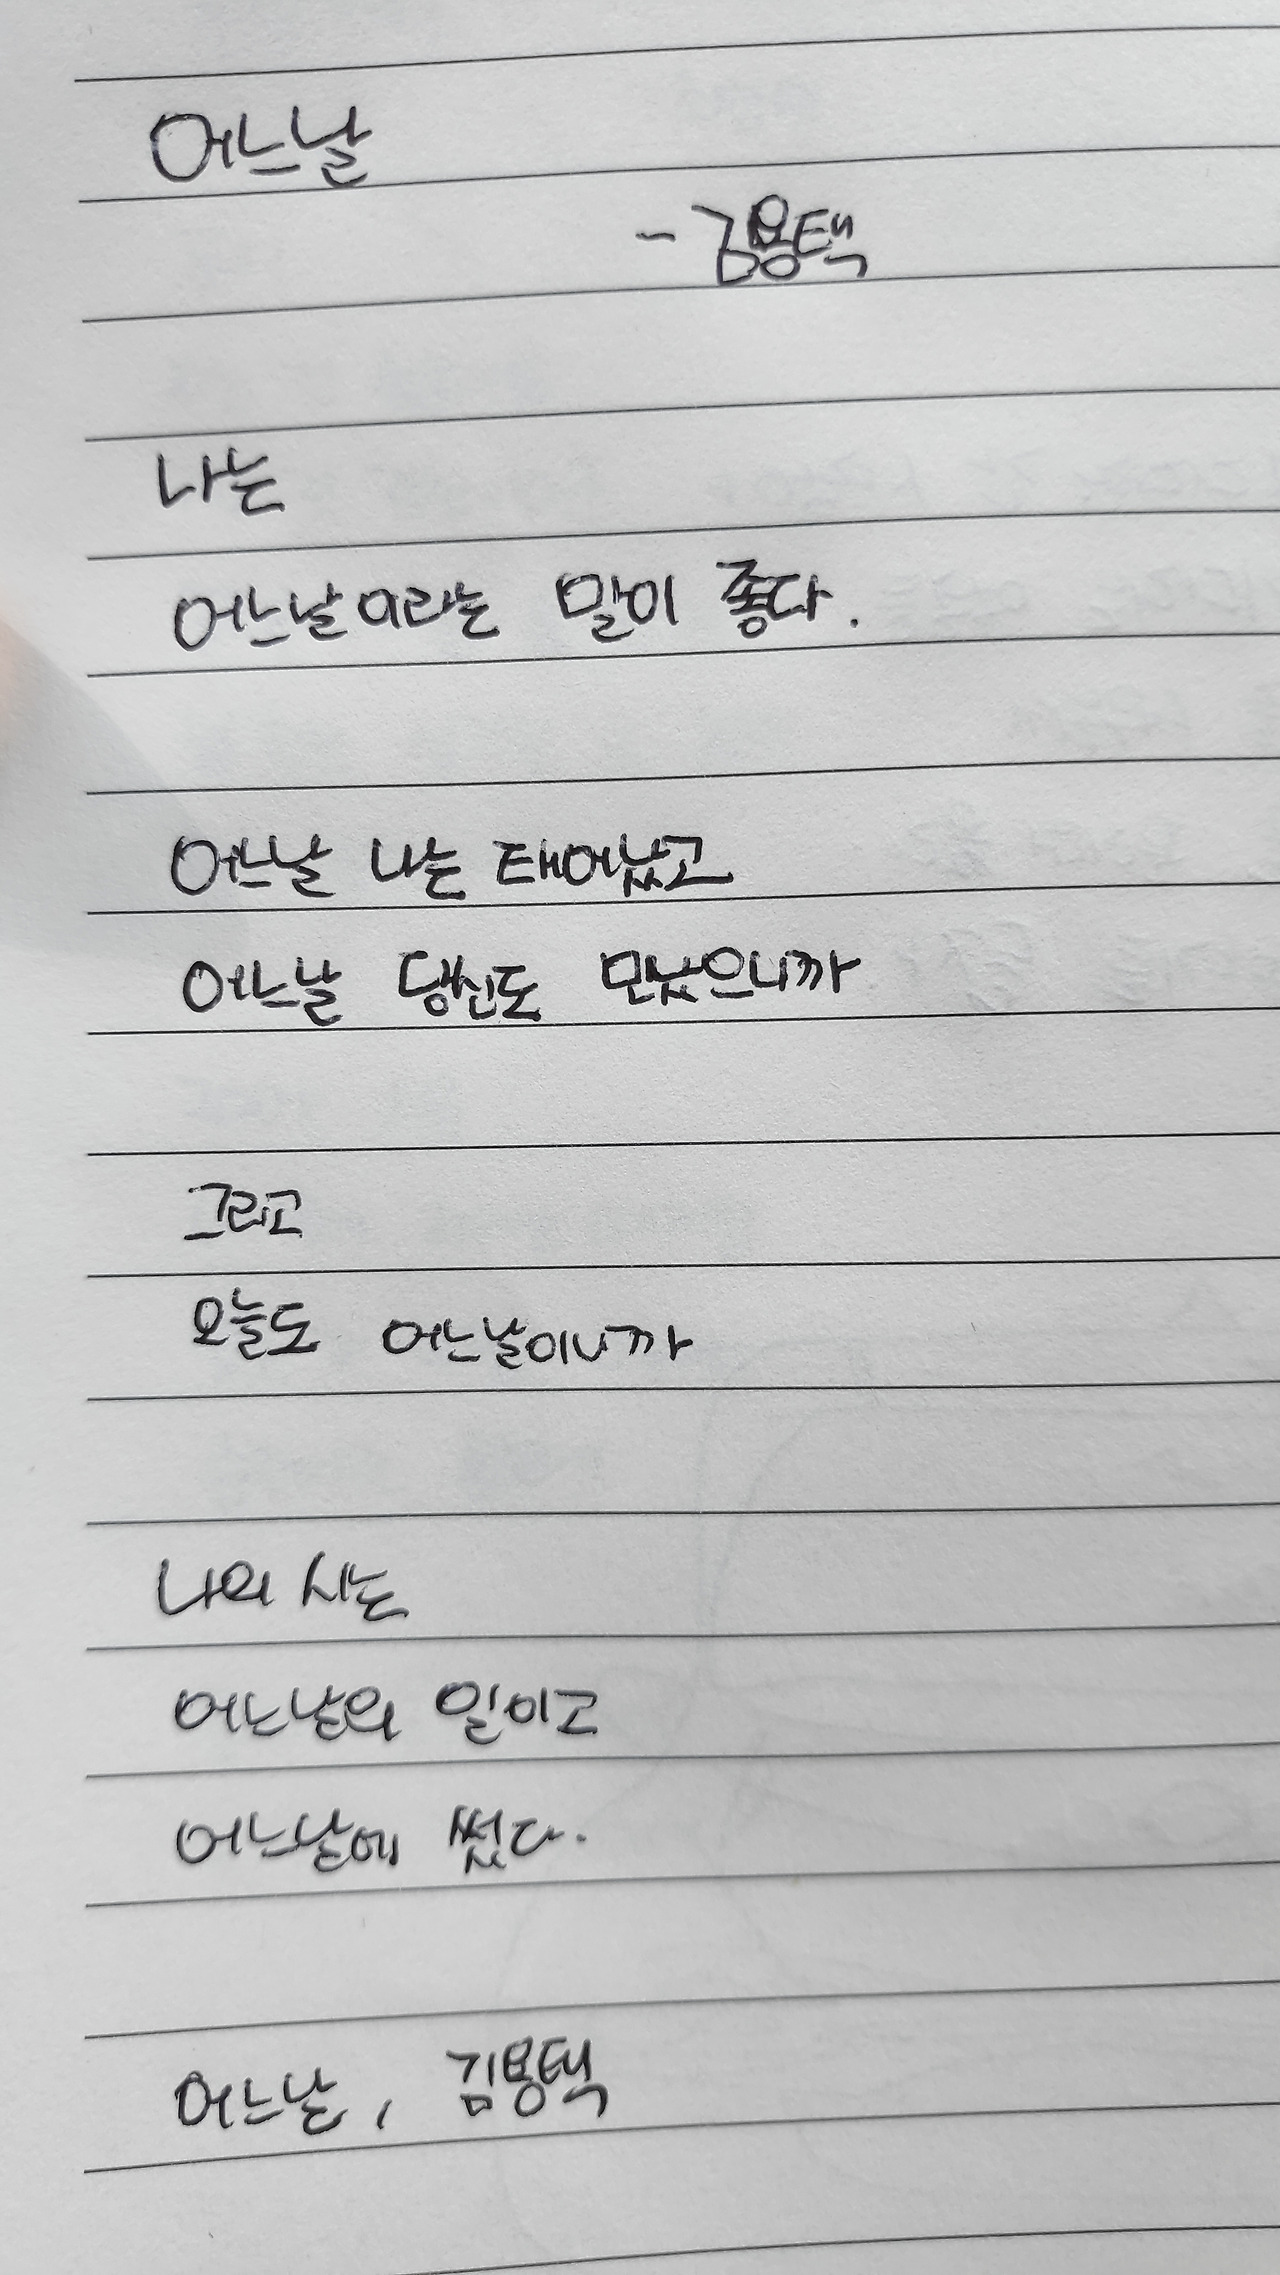 어느날
- 김용택
나는
어느날이라는 말이 좋다.
어느날 나는 태어났고
어느날 당신도 만났으니까
그리고
오늘도 어느날이니까
나의 시는
어느날의 일이고
어느날에 썼다.
어느날, 김용택